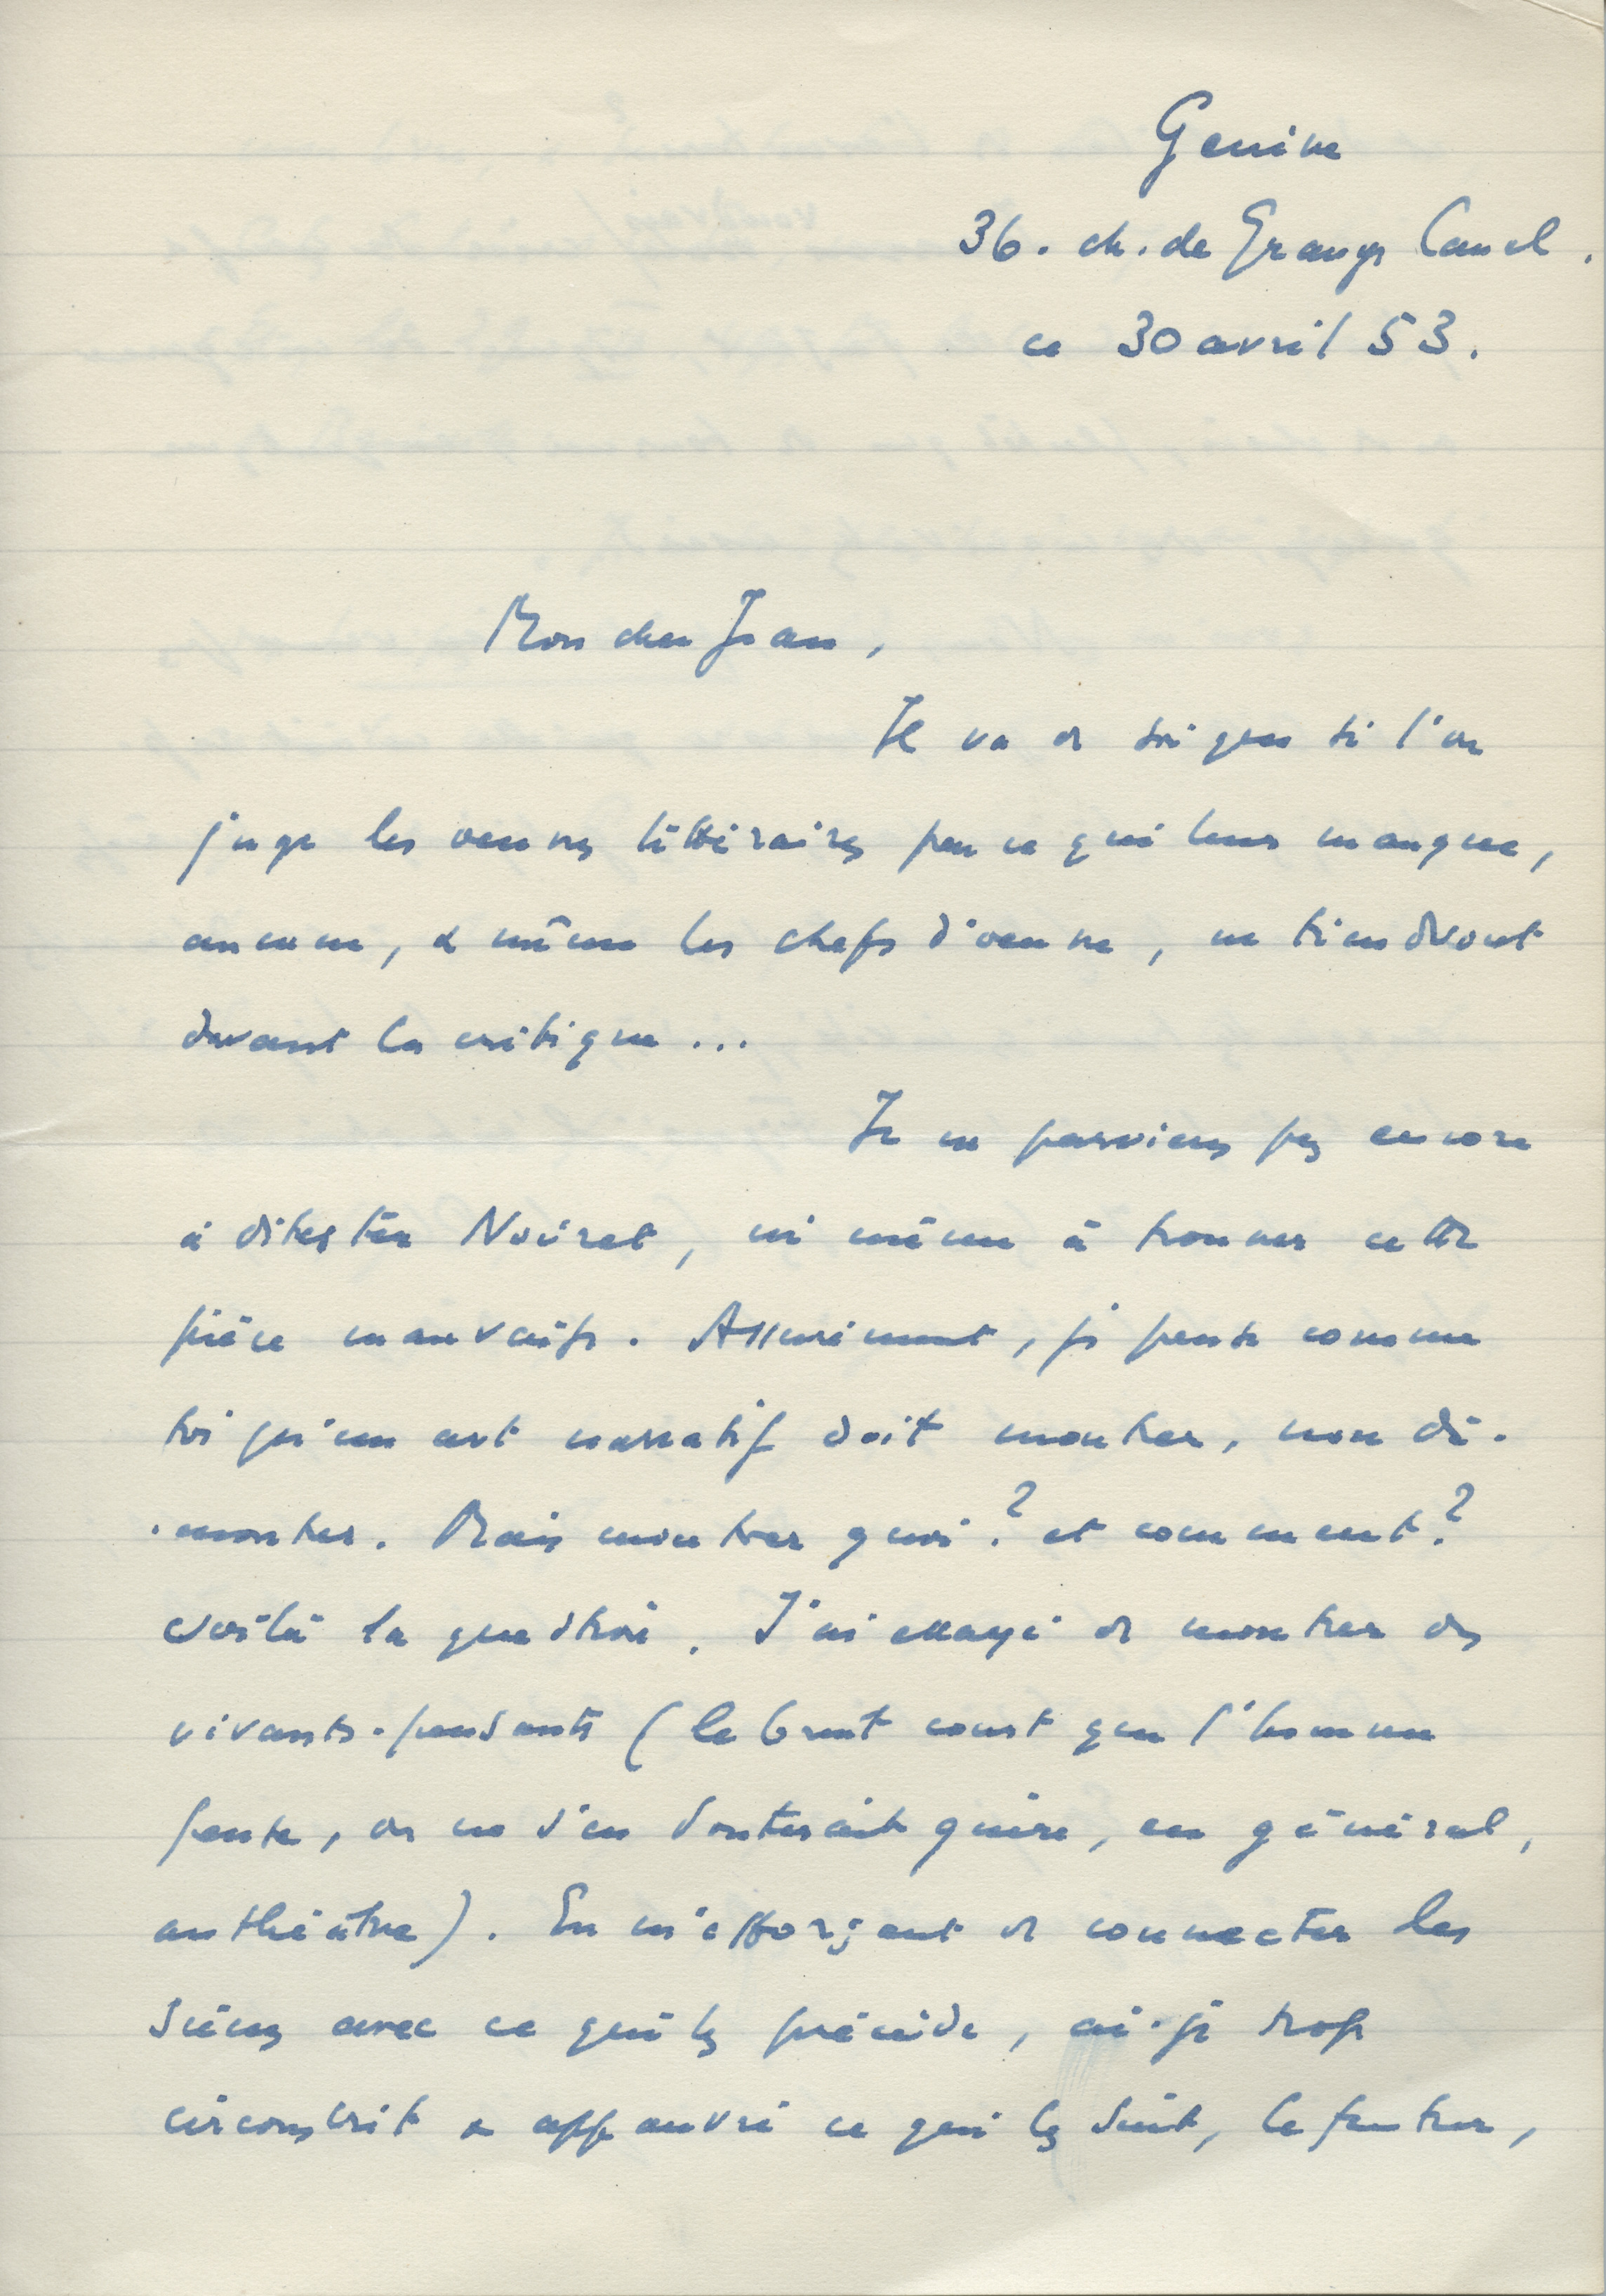 Genève
36. ch. de Grange Canal.
ce 30 avril 53.
Mon cher Jean,
Il va de soi que si l'on
juge les œuvres littéraires par ce qui leur manque,
aucune, & même les chefs d'œuvre, ne tiendront
devant la critique...
Je ne parviens pas encore
à détester Noiret, ni même à trouver cette
pièce mauvaise. Assurément, je pense comme
toi qu'un art narratif doit montrer, non dé-
-monter. Mais montrer quoi? et comment?
Voilà la question. J'ai essayé de montrer des
vivants-pensants (le bruit court que l'homme
pense, on ne s'en douterait guère, en général,
au théâtre). En m'efforçant de connecter les
scènes avec ce qui les précède, ai-je trop
circonscrit & appauvri ce qui les suit, le futur,